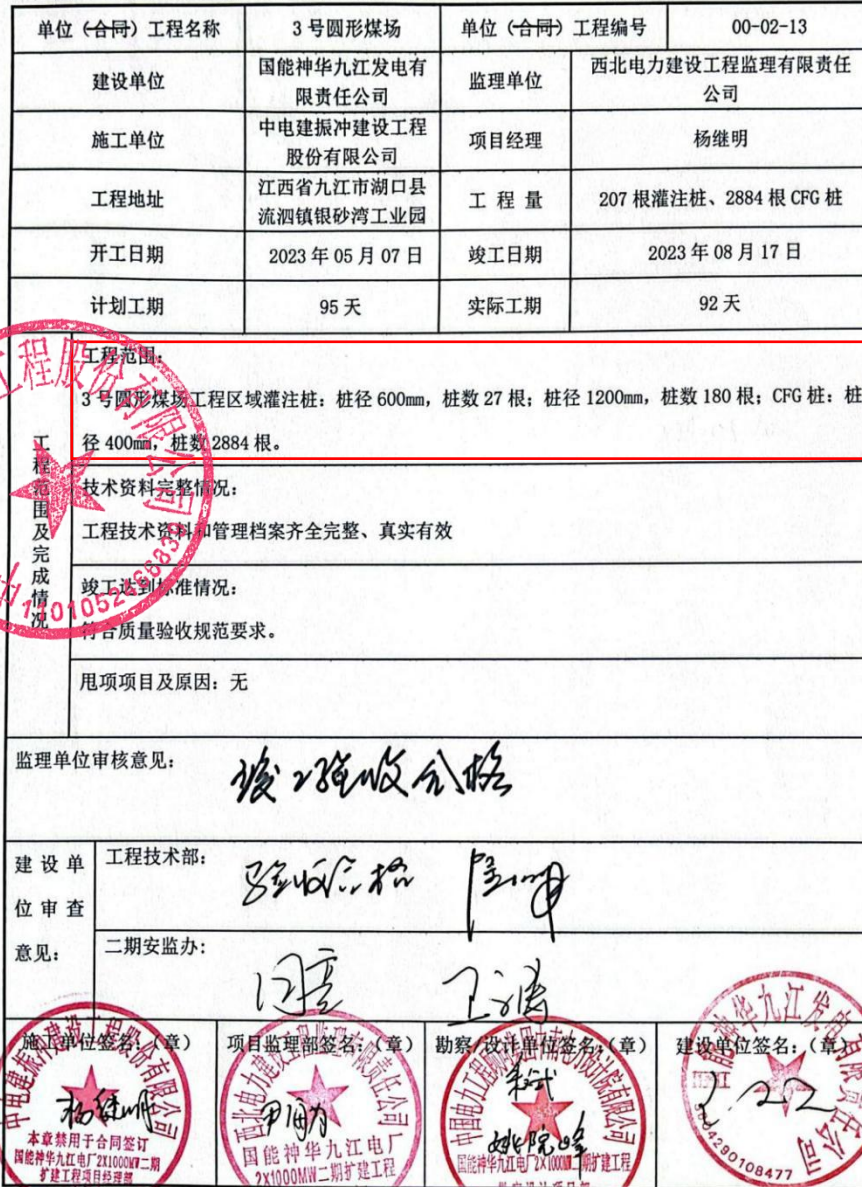 单位（合同）工程名称 3号圆形煤场 单位（合同）工程编号 00-02-13
建设单位 国能神华九江发电有限责任公司 监理单位 西北电力建设工程监理有限责任公司
施工单位 中电建振冲建设工程股份有限公司 项目经理 杨继明
工程地址 江西省九江市湖口县流泗镇银砂湾工业园 工程量 207根灌注桩、2884根CFG桩
开工日期 2023年05月07日 竣工日期 2023年08月17日
计划工期 95天 实际工期 92天
工程范围及完成情况
工程范围：
3号圆形煤场工程区域灌注桩：桩径600mm，桩数27根；桩径1200mm，桩数180根；CFG桩：桩
径400mm，桩数2884根。
技术资料完整情况：
工程技术资料和管理档案齐全完整、真实有效
竣工达到标准情况：
符合质量验收规范要求。
甩项项目及原因：无
监理单位审核意见：
竣工验收合格
建设单位审查意见：
工程技术部：
验收合格
二期安监办：
同意
施工单位签名：（章） 项目监理部签名：（章） 勘察/设计单位签名：（章） 建设单位签名：（章）
杨继明
中电建振冲建设工程股份有限公司
本章禁用于合同签订
国能神华九江电厂2X1000MW二期
扩建工程项目经理部
西北电力建设工程监理有限责任公司
国能神华九江电厂
2X1000MW二期扩建工程
国能神华九江电厂2X1000MW二期扩建工程
国能神华九江发电有限责任公司